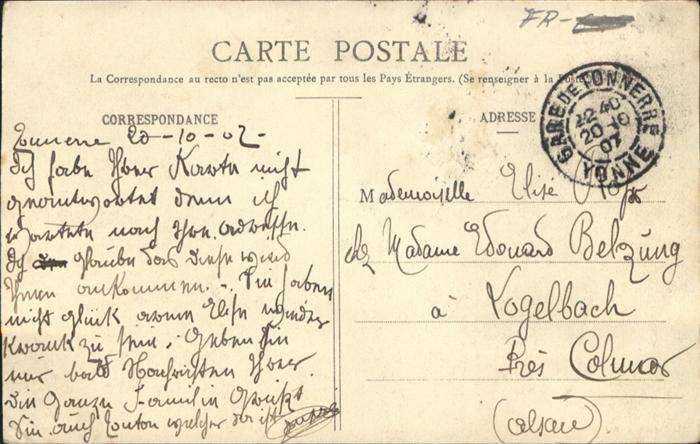 FR-
CARTE POSTALE
La Correspondance au recto n'est pas acceptée par tous les Pays Étrangers. (Se renseigner à la Poste
CORRESPONDANCE
ADRESSE
GARE DE TONNERRE
20-10
07
YONNE
20-10-07-
Ich habe Ihre Karte nicht
geantwortet denn ich
wartete nach Ihre adresse.
Ich glaube das diese wird
Ihnen ankommen. - Sie haben
nicht glück arme Elise wieder
Krank zu sein. Geben Sie
mir bald Nachrichten Ihrer.
Die Ganze Familie Grüßt
Sie auch welcher der ist
Mademoiselle Elise
chez Madame Edouard Belzung
à Vogelbach
Près Colmar
(alsace)